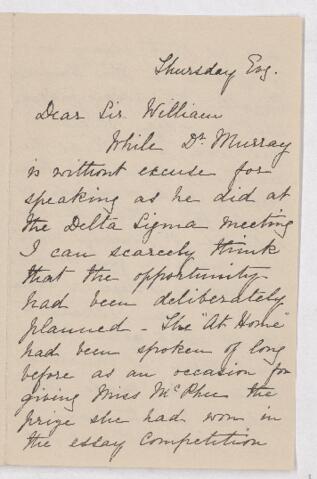 Thursday Evg.
Dear Sir William
While Dr. Murray
is without excuse for
speaking as he did at
the Delta Sigma meeting
I can scarcely think
that the opportunity
had been deliberately
planned - The "At Home"
had been spoken of long
before as an occasion for
giving Miss McPhee the
prize she had won in
the essay competition